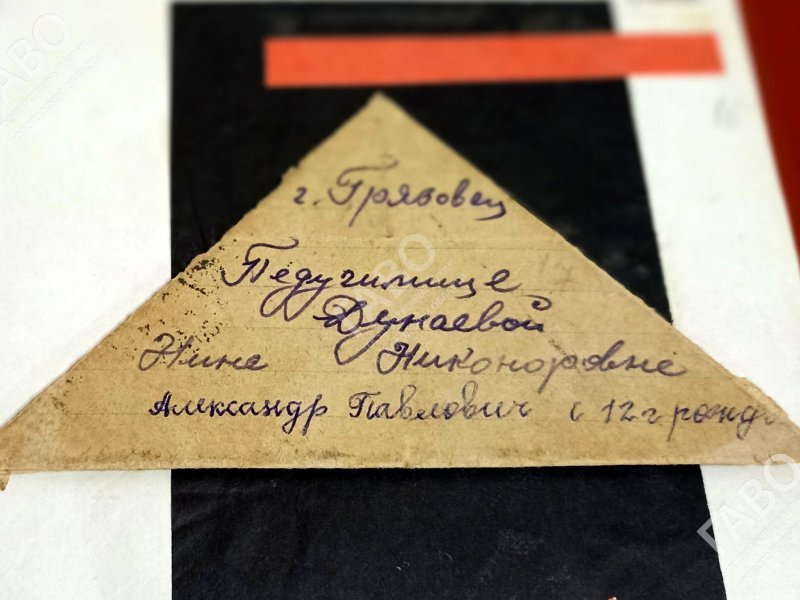 г. Грязовец
Педучилище
Дунаевой
Нине Никоноровне
Александр Павлович с 12 г рожд
ГАВО
ГАВО
ГАВО
ГАВО